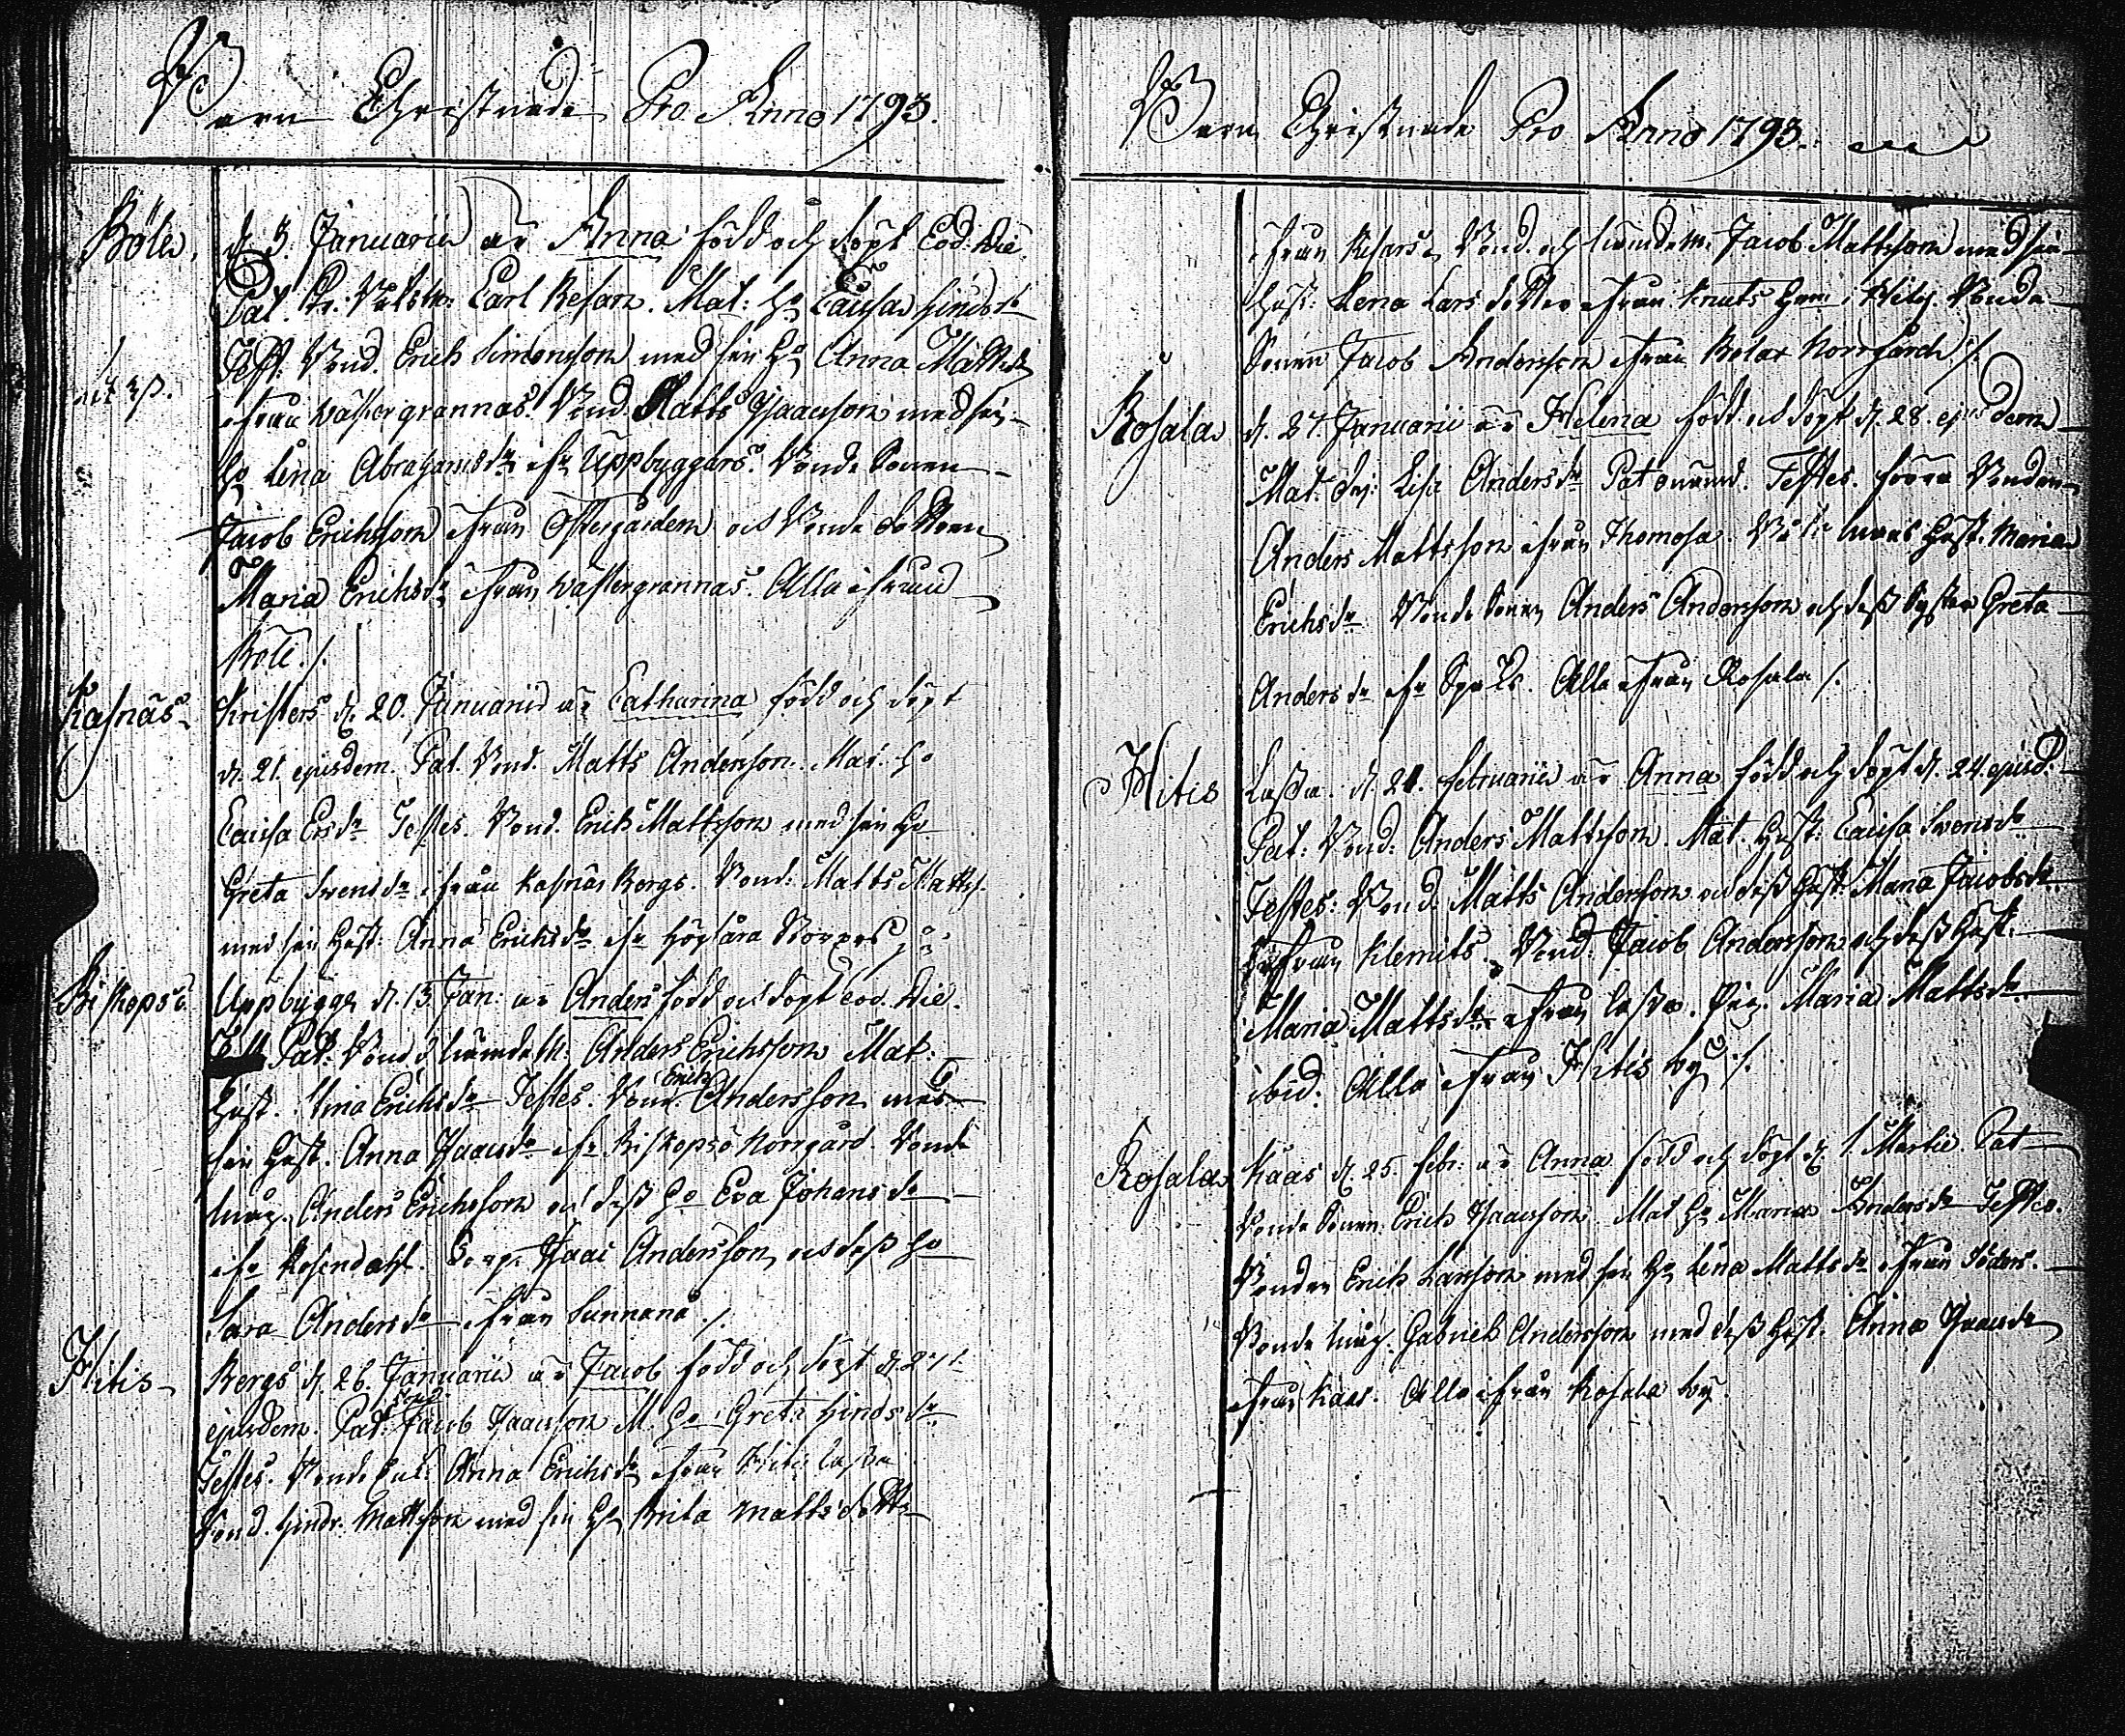 Barn Christnade Pro Anno 1793.
Böle. d. 3. Januarii är Anna född och döpt Eod. die.
Pat. Carl Mat: H: Caisa Hindrs dr
Test. Bond. Erich Simonsson med sin H: Anna Matts dr
ifrån Wästergrannas. Bond. Matts Isaacsson med sin
H: Lena Abrahams dr ifr Uppbyggars. Bonde Sonen
Jacob Erichsson ifrån Östergården och Bonde dottren
Maria Erichs dr ifrån Wästergrannas. Alla ifrån
Böle ./.
Kasnäs Kristers d. 20. Januarii är Catharina född och döpt
d. 21. ejusdem. Pat. Bond. Matts Andersson. Mat. H:
Caisa Ers dr Testes. Bond. Erich Mattsson med sin H:
Greta Svens dr ifrån Kasnäs Bergs. Bond: Matts Matts.
med sin Hust: Anna Erichs dr ifr Högsåra
Biskopsö Uppbygg d. 13. Jan: är Anders född och döpt eod. die.
Pat: Bond. Anders Erichsson Mat:
Hust. Erichs dr Testes. Bond. Erich Andersson med
sin Hust. Anna Isaacs dr ifr Biskopsö Norrgård. Bonde
Anders Erichsson och dess H: Eva Johans dr
ifr Rosendahl. Isaac Andersson och dess H:
Sara Anders dr ifrån Sunnanå ./.
Hitis Bergs d. 26. Januarii är Jacob född och döpt d. 27.
ejusdem. Pat: Bond Jacob Isaacsson M. H: Greta Hinds dr
Testes. Bonde Anna Erichs dr ifrån Hitis Lassa
Bond. Hindr. Mattsson med sin H: Brita Matts dotter
Barn Christnade Pro Anno 1793.
ifrån Bond. och Jacob Mattsson med sin
Hust: Lena Lars dotter ifrån Knuts Hem i Hitis. Bonde
Sonen Jacob Andersson ifrån Bolax Norrgård ./.
Rosala d. 27. Januarii är Helena född och döpt d. 28. ejusdem
Mat. Lisa Anders dr Pat Testes. förra Bonden
Anders Mattsson ifrån Thomosa. Hust. Maria
Erichs dr Bonde Sonen Anders Andersson och dess Syster Greta
Anders dr ifr Alla ifrån Rosala ./.
Hitis Lassa. d. 21. Februarii är Anna född och döpt d. 24. ejusd.
Pat: Bond: Anders Mattsson. Mat. Hust: Caisa Svens dr
Testes: Bond. Matts Andersson och dess Hust. Maria Jacobs dr
ifrån Klemits. Bond. Jacob Andersson och dess Hust.
Maria Matts dr ifrån Lassa. Pig. Maria Matts dr
ibid. Alla ifrån Hitis by ./.
Rosala Kaas d. 25. Febr. är Anna född och döpt d. 1. Martii. Pat
Bonde Sonen Erich Isaacsson Mat H: Maria Anders dr Testes.
Bonden Erich Larsson med sin H: Lena Matts dr ifrån Söders.
Bonde Gabriel Andersson med dess Hust. Anna Isaacs dr
ifrån Kaas. Alla ifrån Rosala by.